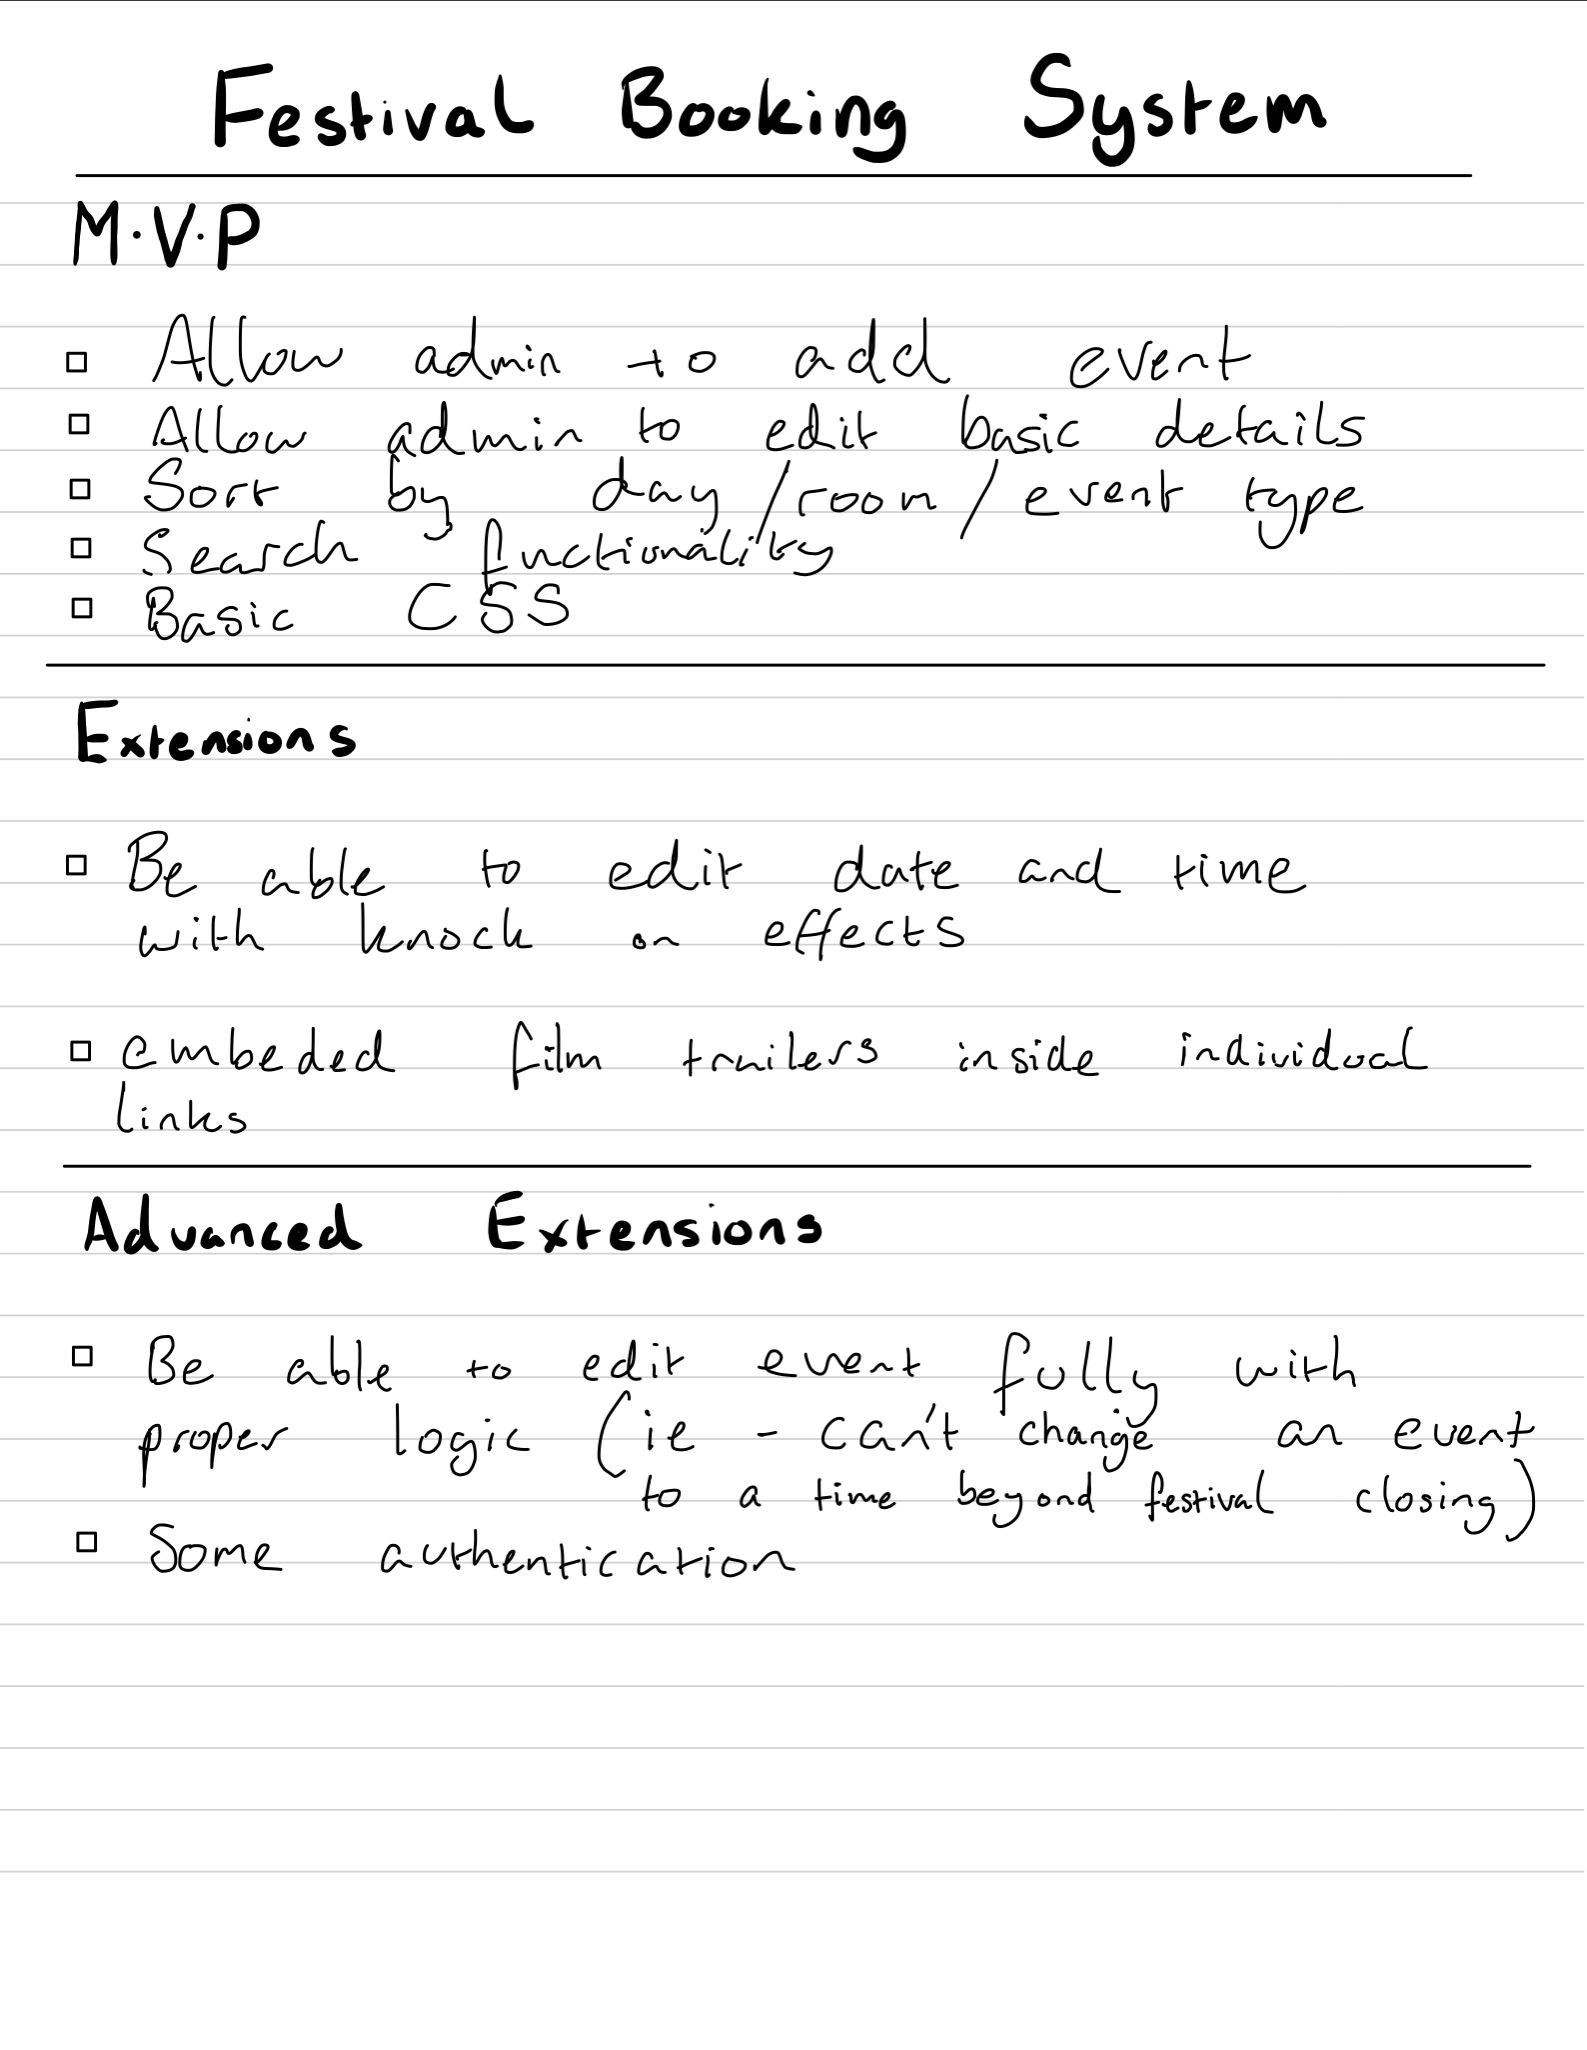 Festival Booking System
M.V.P
Allow admin to add event
Allow admin to edit basic details
Sort by day/room/event type
Search fuctionality
Basic CSS
Extensions
Be able to edit date and time
with knock on effects
embeded film trailers inside individual
links
Advanced Extensions
Be able to edit event fully with
proper logic (ie - can't change an event
to a time beyond festival closing)
Some authentication